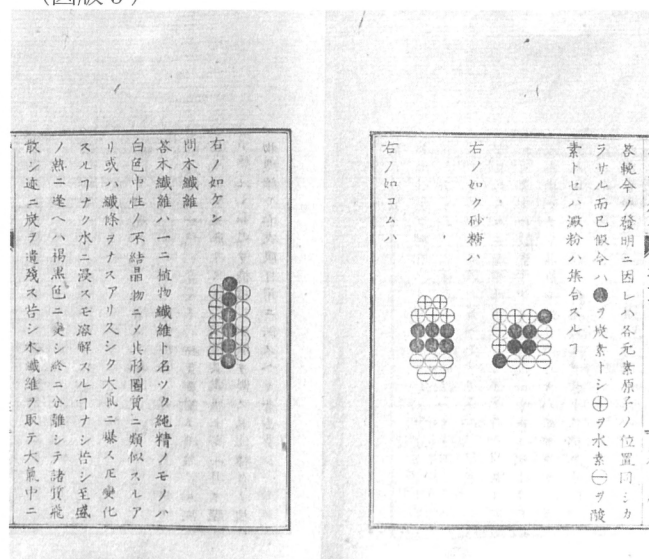 （図版5）
答輓今ノ發明ニ因レハ各元素原子ノ位置同シカ
ラサル而已假令ハ●ヲ炭素トシ⊕ヲ水素⊖ヲ酸
素トセハ澱粉ハ集合スルヿ
右ノ如ク砂糖ハ
右ノ如コムハ
右ノ如ケン
問木纎維
答木纎維ハ一ニ植物纎維ト名ツク純精ノモノハ
白色中性ノ不結晶物ニメ其形圏質ニ類似スルア
リ或ハ纎條ヲナスアリ久シク大氣ニ曝スモ變化
スルヿナク水ニ浸スモ溶解スルヿナシ若シ至盛
ノ熱ニ逢ヘハ褐黒色ニ変シ終ニ分離シテ諸質飛
散シ迹ニ炭ヲ遺殘ス若シ木纎維ヲ取テ大氣中ニ